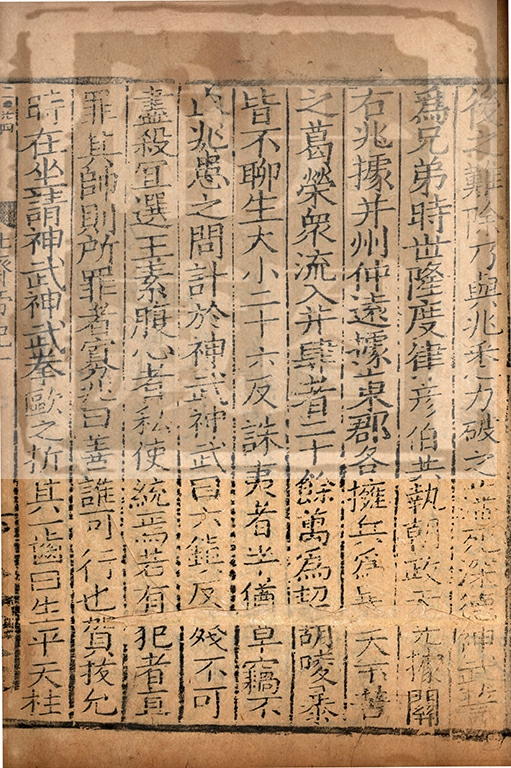 後之難除乃與兆悉力破之藩死深德神武誓
爲兄弟時世隆度律彦伯共執朝政天光據關
右兆據并州仲遠據東郡各擁兵爲暴天下苦
之葛榮衆流入并肆者二十餘萬爲契胡陵暴
皆不聊生大小二十六反誅夷者半猶草竊不
止兆患之問計於神武神武曰六鎮反殘不可
盡殺宜選王素腹心者私使統焉若有犯者直
罪其師則所罪者寡兆曰善誰可行也賀拔允
時在坐請神武神武拳歐之折其一齒曰生平天柱